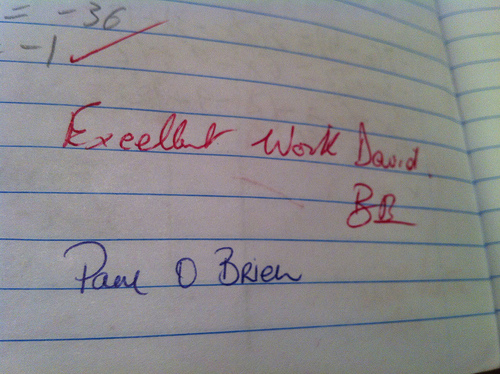 = -36
= -1
Excellent Work David.
BB
Paul O Brien